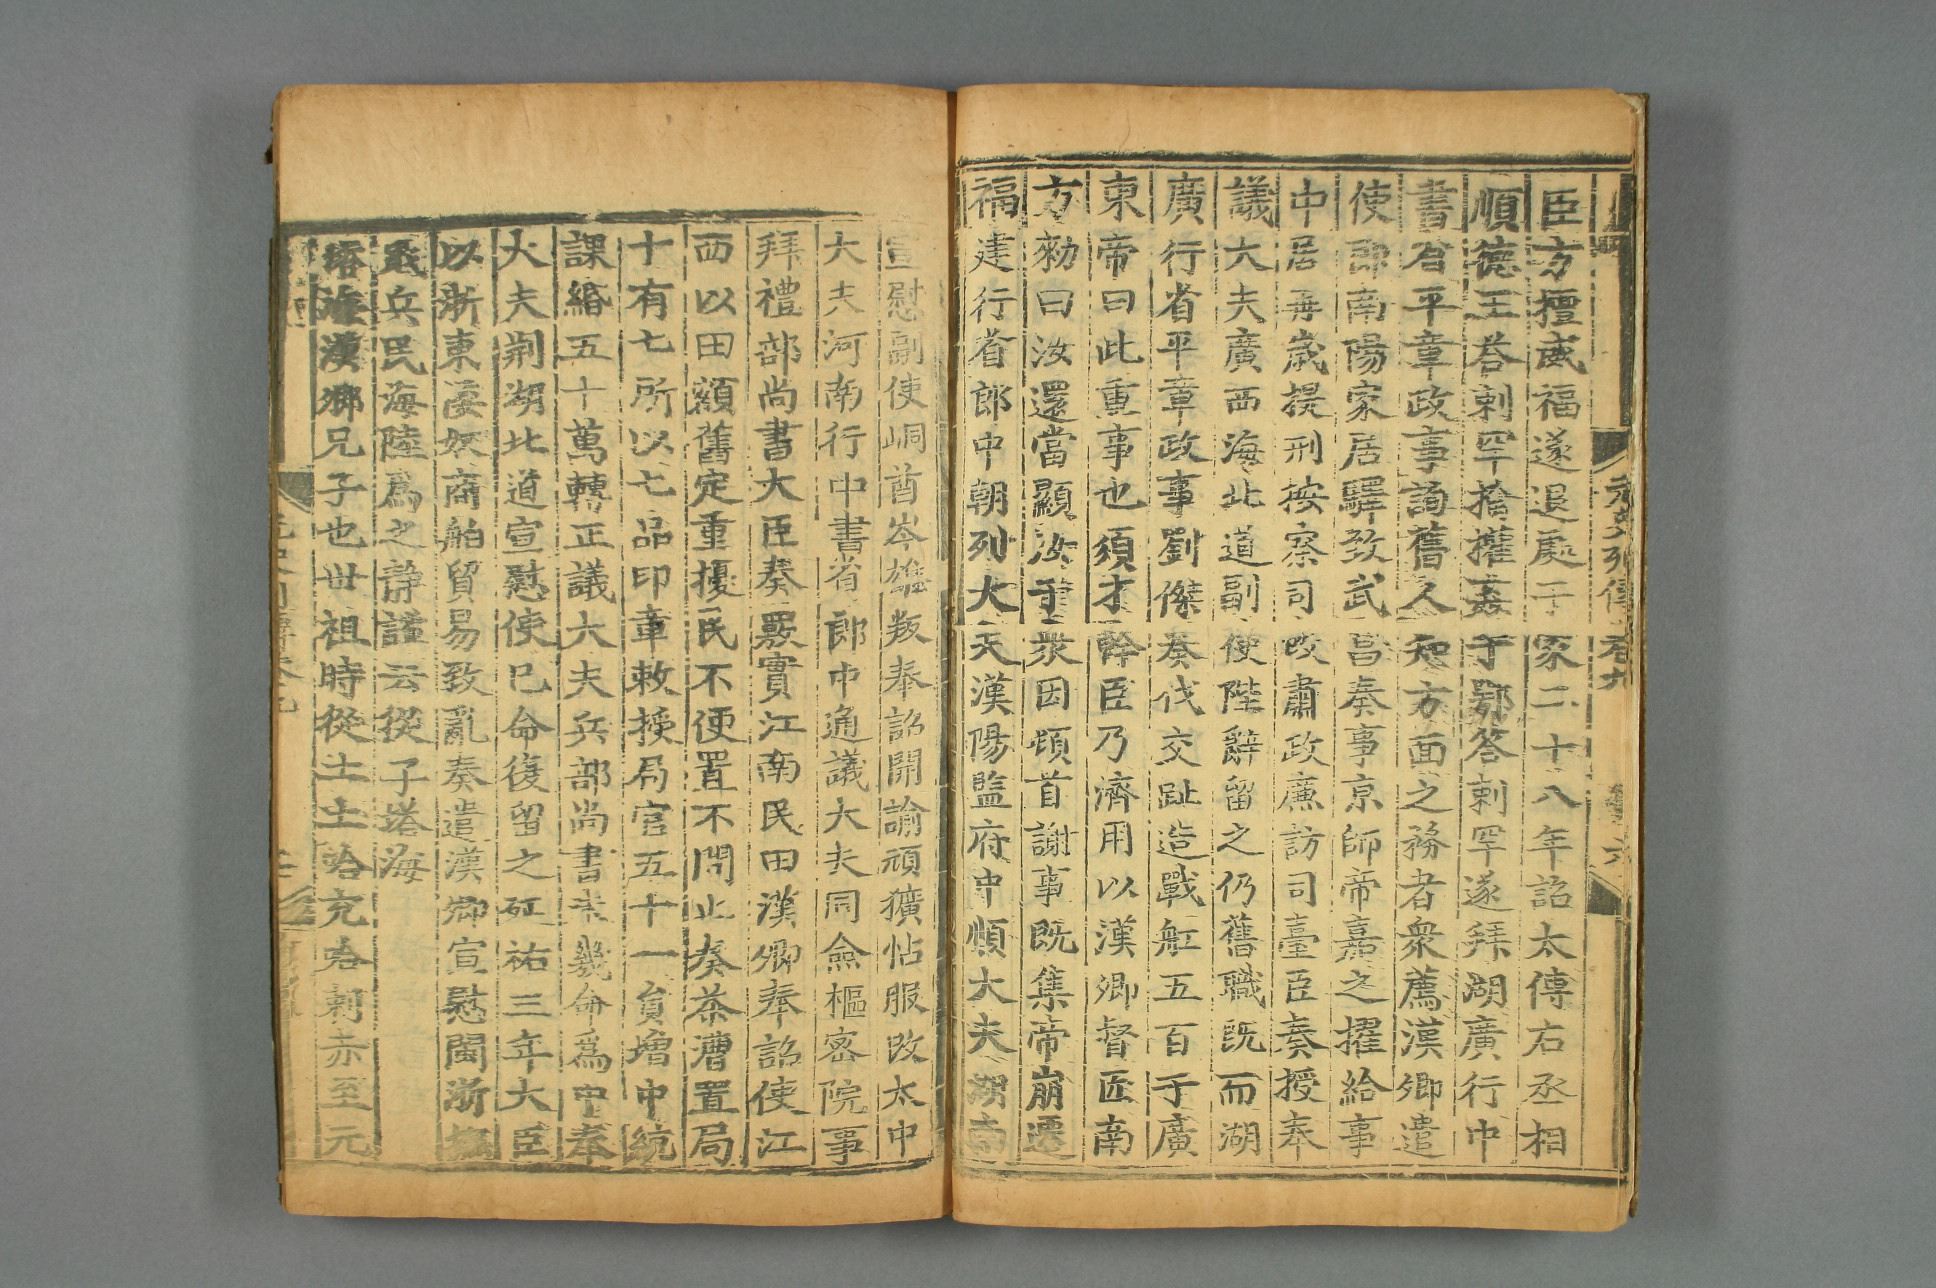 臣方擅威福遂退處于家二十八年詔太傅右丞相
順德王荅剌罕捨攉姦于鄂答剌罕遂拜湖廣行中
書省平章政事詢舊人知方面之務者衆薦漢卿遣
使即南陽家居驛致武昌奏事京師帝嘉之擢給事
中居再歲提刑按察司改肅政廉訪司臺臣奏授奉
議大夫廣西海北道副使陛辭留之仍舊職既而湖
廣行省平章政事劉傑奏伐交趾造戰舡五百于廣
東帝曰此重事也須才幹臣乃濟用以漢卿督匠南
方勑曰汝還當顯汝于衆因頓首謝事既集帝崩遷
福建行省郎中朝列大夫漢陽監府中順大夫湖南
宣慰副使峒酋岑雄叛奉詔開諭頑獷帖服改太中
大夫河南行中書省郎中通議大夫同僉樞密院事
拜禮部尚書大臣奏覈實江南民田漢卿奉詔使江
西以田額舊定重擾民不便置不問止奏茶漕置局
十有七所以七品印章敕授局官五十一員增中統
課緡五十萬轉正議大夫兵部尚書未幾侖爲中奉
大夫荆湖北道宣慰使巳命復留之延祐三年大臣
以浙東倭奴商舶貿易致亂奏遣漢卿宣慰閩浙撫
戢兵民海陸爲之静謐云從子塔海
塔海漢鄉兄子也世祖時從土土哈充哈剌赤至元
元史列傳卷九
六